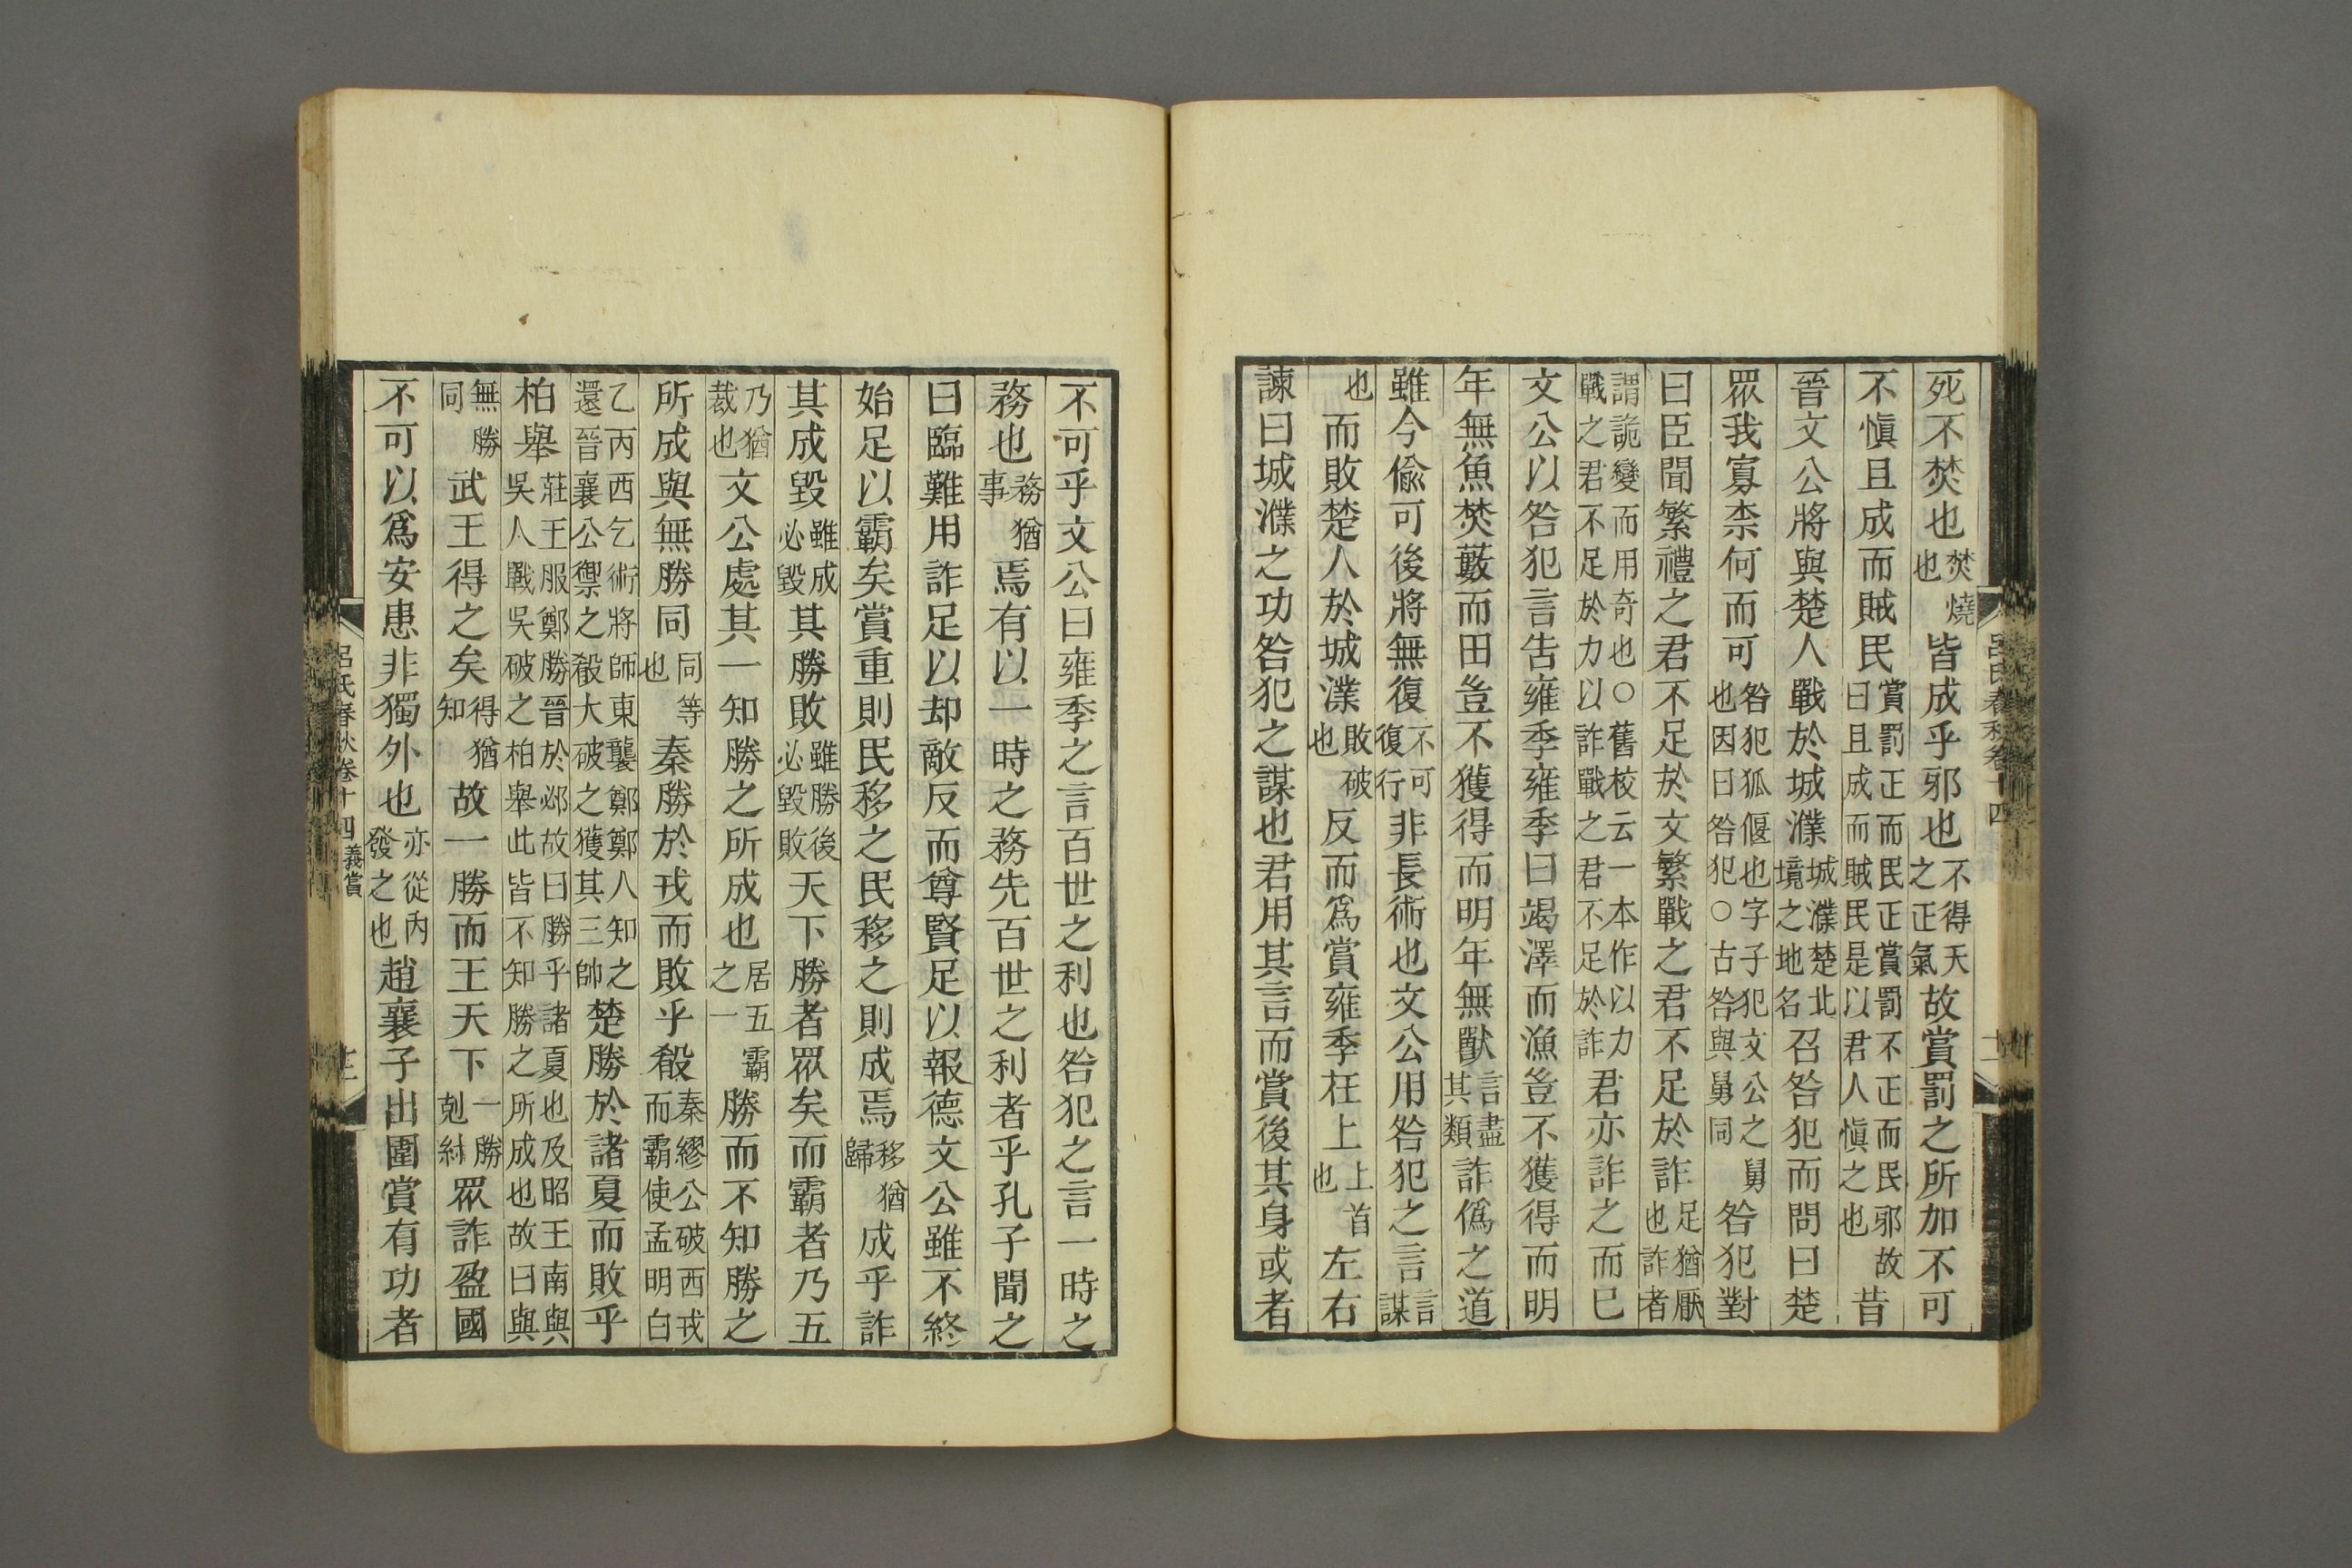 死不焚也焚燒也皆成乎邪也不得天之正氣故賞罰之所加不可
不愼且成而賊民賞罰正而民正賞罰不正而民邪故曰且成而賊民是以君人愼之也昔
晉文公將與楚人戰於城濮城濮楚北境之地名召咎犯而問曰楚
眾我寡柰何而可咎犯狐偃也字子犯文公之舅也因曰咎犯○古咎與舅同咎犯對
曰臣聞繁禮之君不足於文繁戰之君不足於詐足猶厭也詐者
謂詭變而用奇也○舊校云一本作以力戰之君不足於力以詐戰之君不足於詐君亦詐之而已
文公以咎犯言告雍季雍季曰竭澤而漁豈不獲得而明
年無魚焚藪而田豈不獲得而明年無獸言盡其類詐僞之道
雖今偷可後將無復不可復行非長術也文公用咎犯之言言謀
也而敗楚人於城濮敗破也反而爲賞雍季在上上首也左右
諫曰城濮之功咎犯之謀也君用其言而賞後其身或者
不可乎文公曰雍季之言百世之利也咎犯之言一時之
務也務猶事焉有以一時之務先百世之利者乎孔子聞之
曰臨難用詐足以却敵反而尊賢足以報德文公雖不終
始足以霸矣賞重則民移之民移之則成焉移猶歸成乎詐
其成毀雖成必毀其勝敗雖勝後必毀敗天下勝者眾矣而霸者乃五
乃猶裁也文公處其一知勝之所成也居五霸之一勝而不知勝之
所成與無勝同同等也秦勝於戎而敗乎殽秦繆公破西戎而霸使孟明白
乙丙西乞術將師東襲鄭鄭人知之還晉襄公禦之殽大破之獲其三帥楚勝於諸夏而敗乎
柏舉莊王服鄭勝晉於邲故曰勝乎諸夏也及昭王南與吳人戰吳破之柏舉此皆不知勝之所成也故曰與
無勝同武王得之矣得猶知故一勝而王天下一勝剋紂眾詐盈國
不可以爲安患非獨外也亦從內發之也趙襄子出圍賞有功者
呂氏春秋卷十四
義賞